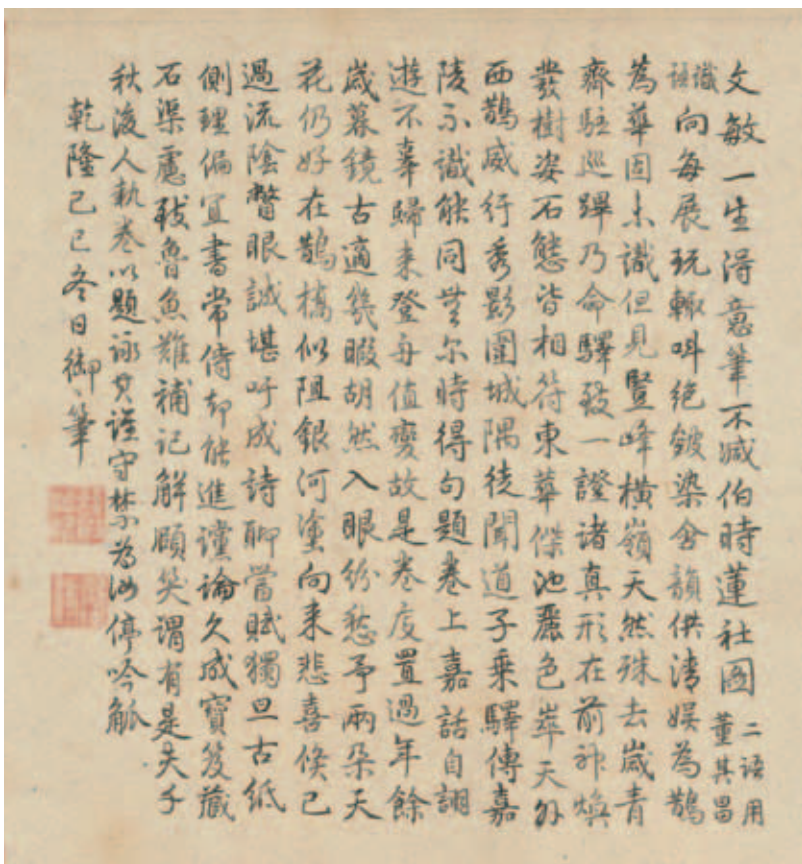 文敏一生得意筆不減伯時蓮社圖二語用董其昌
識語向每展玩輒叫絕皴染含韻供清娛為鵲
為華固未識但見豎峰橫嶺天然殊去歲青
齊駐巡蹕乃命驛致一證諸真形在前神煥
發樹姿石態皆相符東華傑池麗色崒天外
西鵲威行秀影圍城隅徒聞道子乘驛傳嘉
陵不識能同無尔時得句題卷上嘉話自詡
遊不辜歸來登舟值變故是卷庋置過年餘
歲暮鏡古適幾暇胡然入眼紛愁予兩朵天
花仍好在鵲橋似阻銀河塗向來悲喜倏已
過流陰瞥眼誠堪吁成詩聊當賦獨旦古紙
側理偏宜書常侍却能進讜論久成寶笈藏
石渠慮致魯魚難補記解頤笑謂有是夫千
秋後人執卷以題詠其謹守禁為汝停吟觚
乾隆己巳冬日御筆